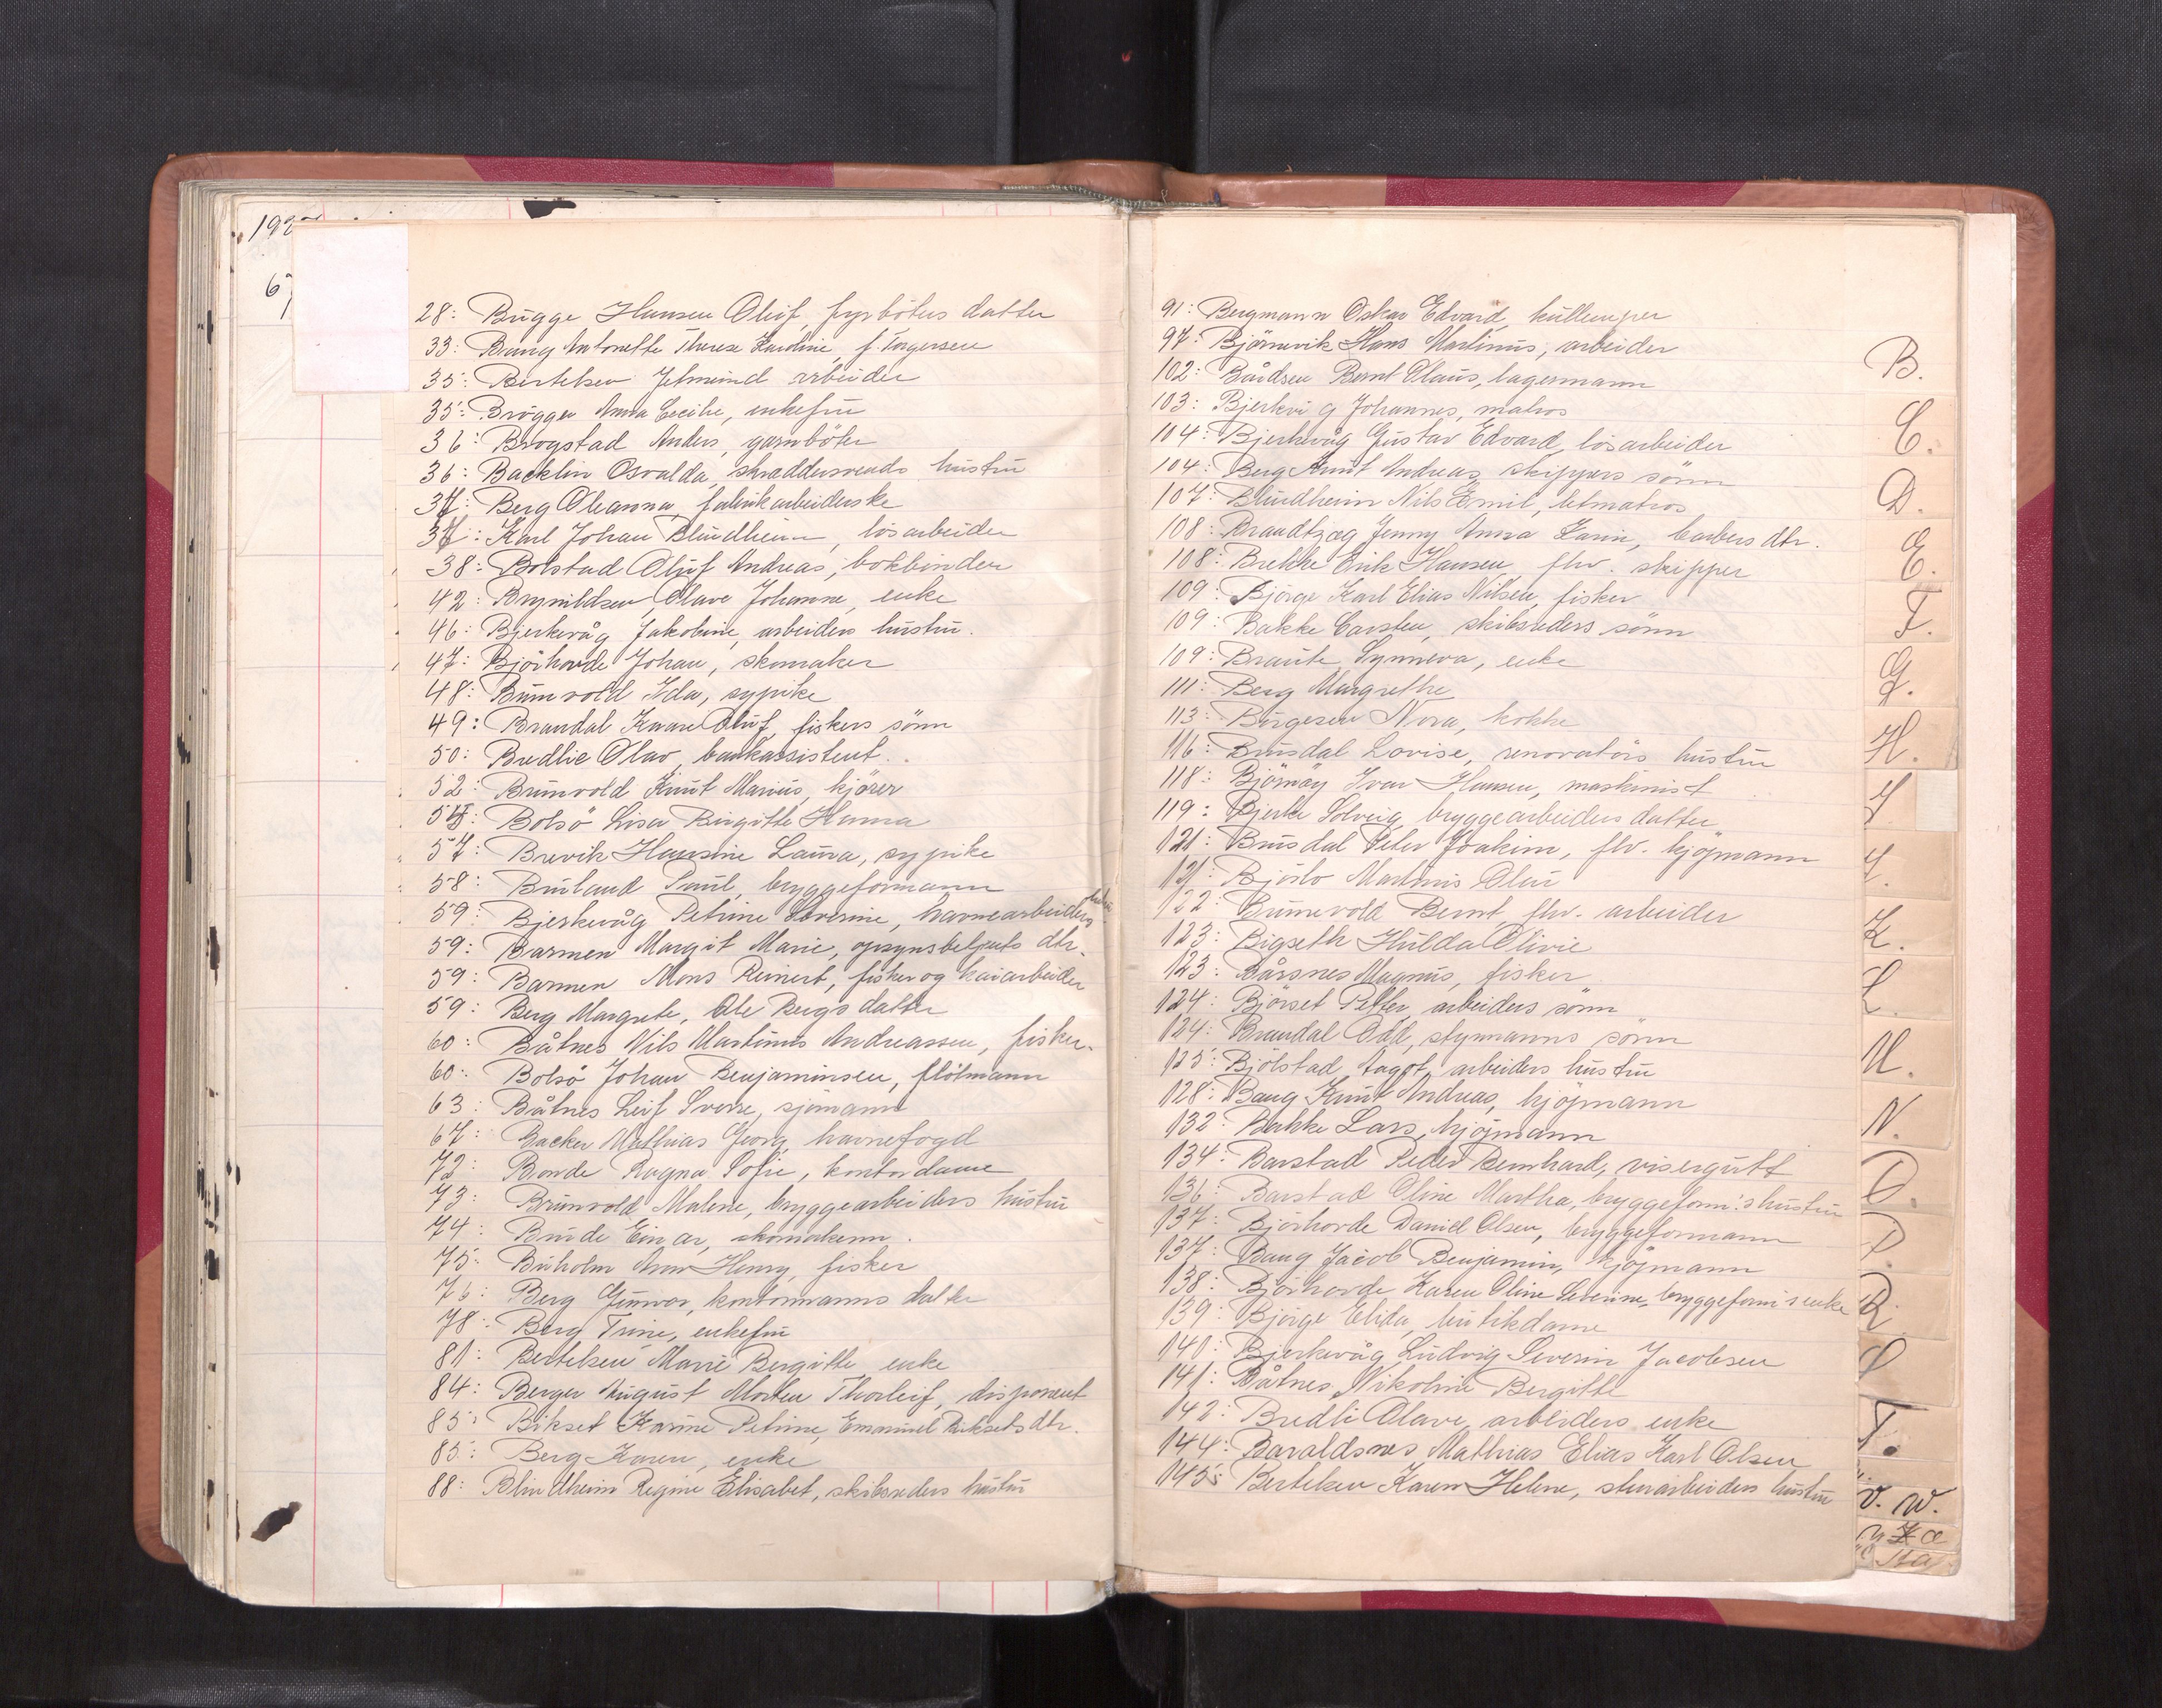 192
67
28: Bugge Hansen Oluf, fyrböters datter
33: Bang Antonette Therese Karoline, f. Torgersen
35: Bertelsen Jetmund arbeider
35: Brögger Anna Cecilie, enkefru
36: Brogstad Anders, garnböter
36: Backlin Osvalda, skreddersvends hustru
37: Berg Oleanna, fabrikarbeiderske
37: Karl Johan Blindheim, lösarbeider
38: Bolstad Oluf Andreas, bokbinder
42: Brynildsen Olave Johanne, enke
46: Bjerkevåg Jakobine, arbeiders hustru.
47: Björhovde Johan, skomaker
48: Brunvold Ida, sypike
49: Brandal Kaare Oluf, fiskers sönn
50: Bredlie Olav, bankassistent.
52: Brunvold Knut Marius, kjörer
54: Bolsö Lisa Birgitte Hanna
57: Brevik Hansine Laura, sypike
58: Buland Paul, bryggeformann
59: Bjerkevåg Petrine Severine, havnearbeiders hustru
59: Barmen Margit Marie, opsynsbetjents dtr.
59: Barmen Mons Reinert, fisker og kaiarbeider
59: Berg Margrete, Ole Bergs datter
60: Båtnes Nils Martinus Andreassen, fisker.
60: Bolsö Johan Benjaminsen, flötmann
63: Båtnes Leif Sverre, sjömann
67: Backer Mathias Georg, havnefogd
72: Bonde Ragna Sofie, kontordame
73: Brunvold Malene, bryggearbeiders hustru
74: Bunde Einar, skomakerm.
75: Buholm Arne Henry, fisker
76: Berg Gunvor, kontormanns datter
78: Berg Trine, enkefru
81: Bertelsen Marie Bergitte, enke
84: Berger August Morten Thorleif, disponent
85: Bikset Karine Petrine, Emanuel Biksets dtr.
85: Berg Karen, enke
88: Blindheim Regine Elisabet, skibsreders hustru
91: Bergmann Oskar Edvard, kullemper
97: Björnevik Hans Martinus, arbeider
102: Bårdsen Bernt Olaus, lagermann
103: Bjerkvig Johannes, matros
104: Bjerkevåg Gustav Edvard, lösarbeider
104: Berg Knut Andreas, skippers sönn
107: Blindheim Nils Emil, letmatros
108: Brandtzæg Jenny Anna Karin, barbers dtr.
108: Brekke Erik Hansen, fhv. skipper
109: Björge Karl Elias Nilsen, fisker
109: Bakke Carsten, skibsreders sönn
109: Braute Synneva, enke
111: Berg Margrethe
113: Birgesen Nora, kokke
116: Brusdal Lovise, renovatörs hustru
118: Björnöy Ivar Hansen, maskinist
119: Bjerke Solveig, bryggearbeiders datter
121: Brusdal Peter Joakim, fhv. kjöpmann
121: Björlo Martinus Olai
122: Brunevold Bernt, fhv. arbeider
123: Bigseth Hulda Olivie
123: Bårsnes Magnus, fisker
124: Björset Petter, arbeiders sönn
124: Brandal Odd, styrmanns sönn
125: Björlstad, Aagot, arbeiders hustru
128: Bang Knut Andreas, kjöpmann
132: Bakke Lars, kjöpmann
134: Barstad Peder Bernhard, visergutt
136: Barstad Oline Martha, bryggeform:s hustru
137: Björhovde Daniel Olsen, bryggeformann
137: Bang Jacob Benjamin, kjöpmann
138: Björhovde Karen Oline Severine, bryggeform's enke
139: Björge Elida, butikdame
140: Bjerkevåg Ludvig Severin Jacobsen
141: Båtnes Nikoline Bergitte
142: Bredli Olave, arbeiders enke
144: Baraldsnes Mathias Elias Karl Olsen
145: Bertelsen Karen Helene, stenarbeiders hustru
B.
C.
D.
E.
F.
G.
H.
I
J.
K.
L.
M.
N.
O.
P.
R.
S
T.
V. W.